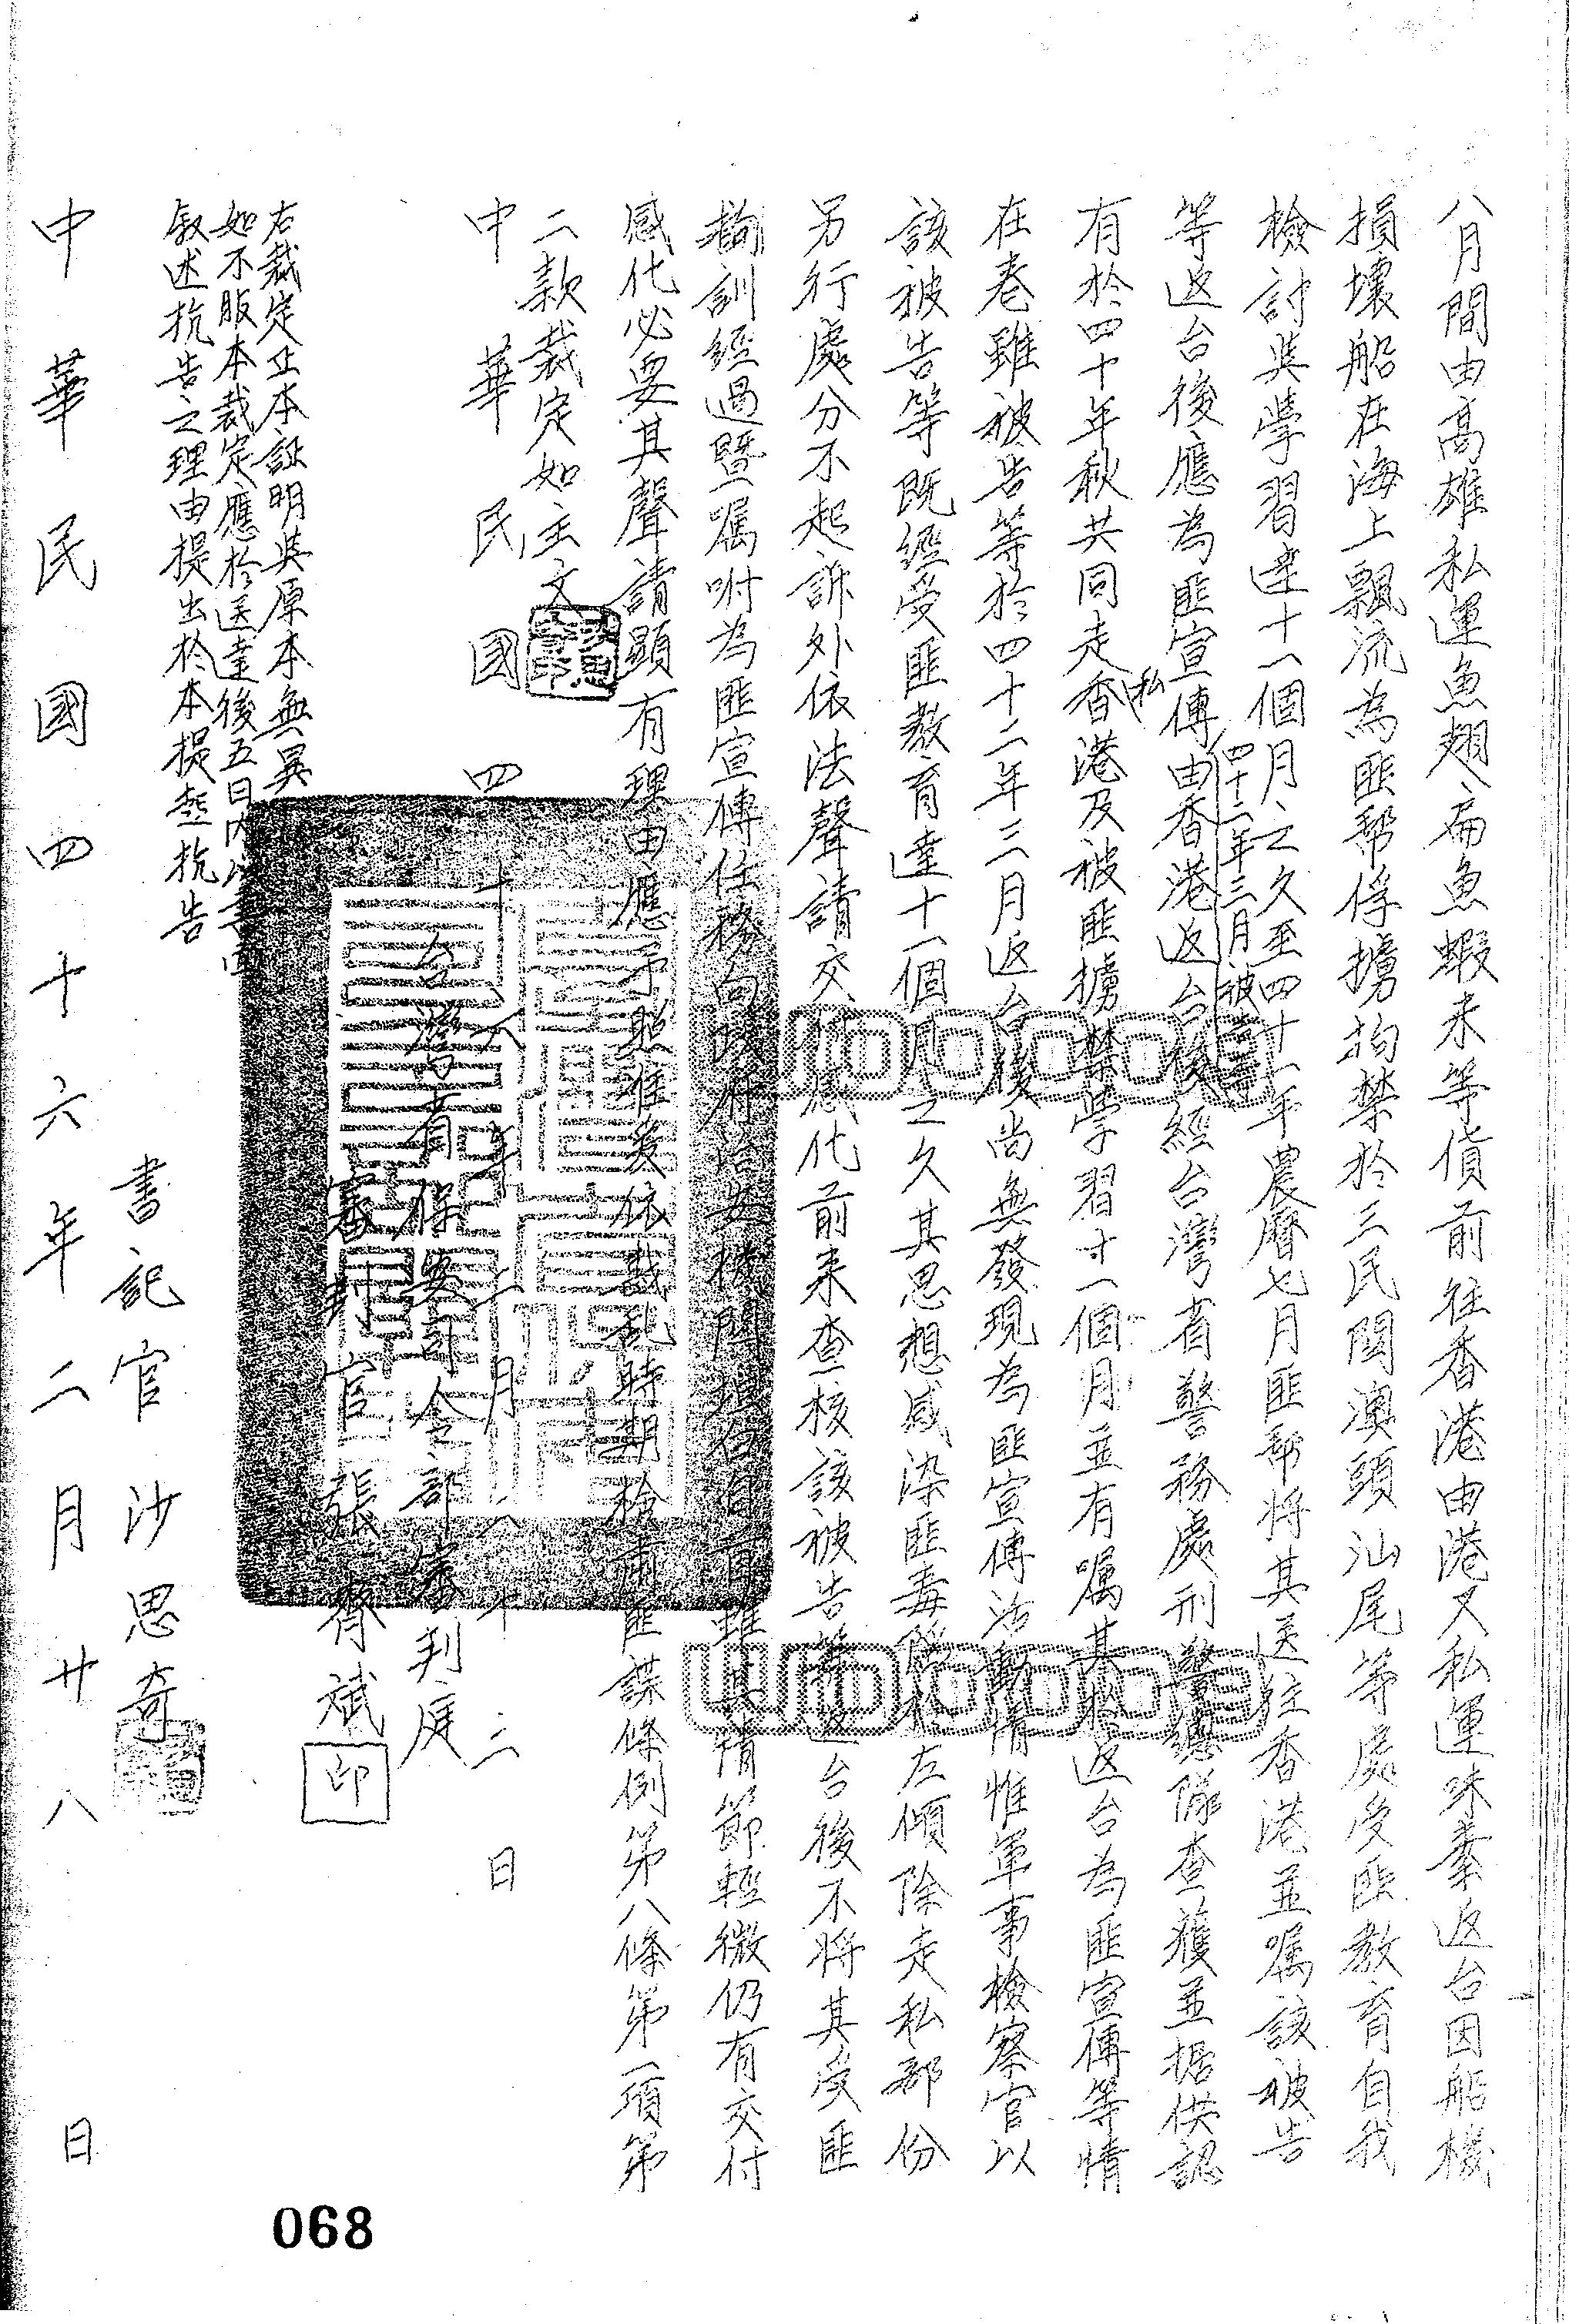 八月間由高雄私運魚翅、扁魚蝦米等貨前往香港由港又私運味素返台因船機
損壞船在海上飄流為匪幫俘擄拘禁於三民閩澳頭汕尾等處受匪教育自我
檢討與學習達十一個月之久至四十一年農曆七月匪幫將其送往香港並囑該被告
等返台後應為匪宣傳由香港返台後經台灣省警務處刑警總隊查獲並据供認
四十二年三月被告等
有於四十年秋共同走私香港及被匪擄禁學習十一個月並有囑其於返台為匪宣傳等情
在卷雖被告等於四十二年三月返台後尚無發現為匪宣傳活動情惟軍事檢察官以
該被告等既經受匪教育達十一個月之久其思想感染匪毒 左傾除走私部份
另行處分不起訴外依法聲請交付感化前來查核該被告等返台後不將其受匪
拘訓經過暨囑咐為匪宣傳任務向政府治安機關 自首雖其情節輕微仍有交付
感化必要其聲請顯有理由應予照准爰依戡乱時期檢肅匪諜條例第八條第一項第
二款裁定如主文
中華民國四十六年二月二十二日
台灣省保安司令部審判庭
審判官 張齊斌 印
右裁定正本証明與原本無異
如不服本裁定應於送達後五日內以書面
敘述抗告之理由提出於本提起抗告
書記官 沙思奇
中華民國四十六年二月廿八日
068